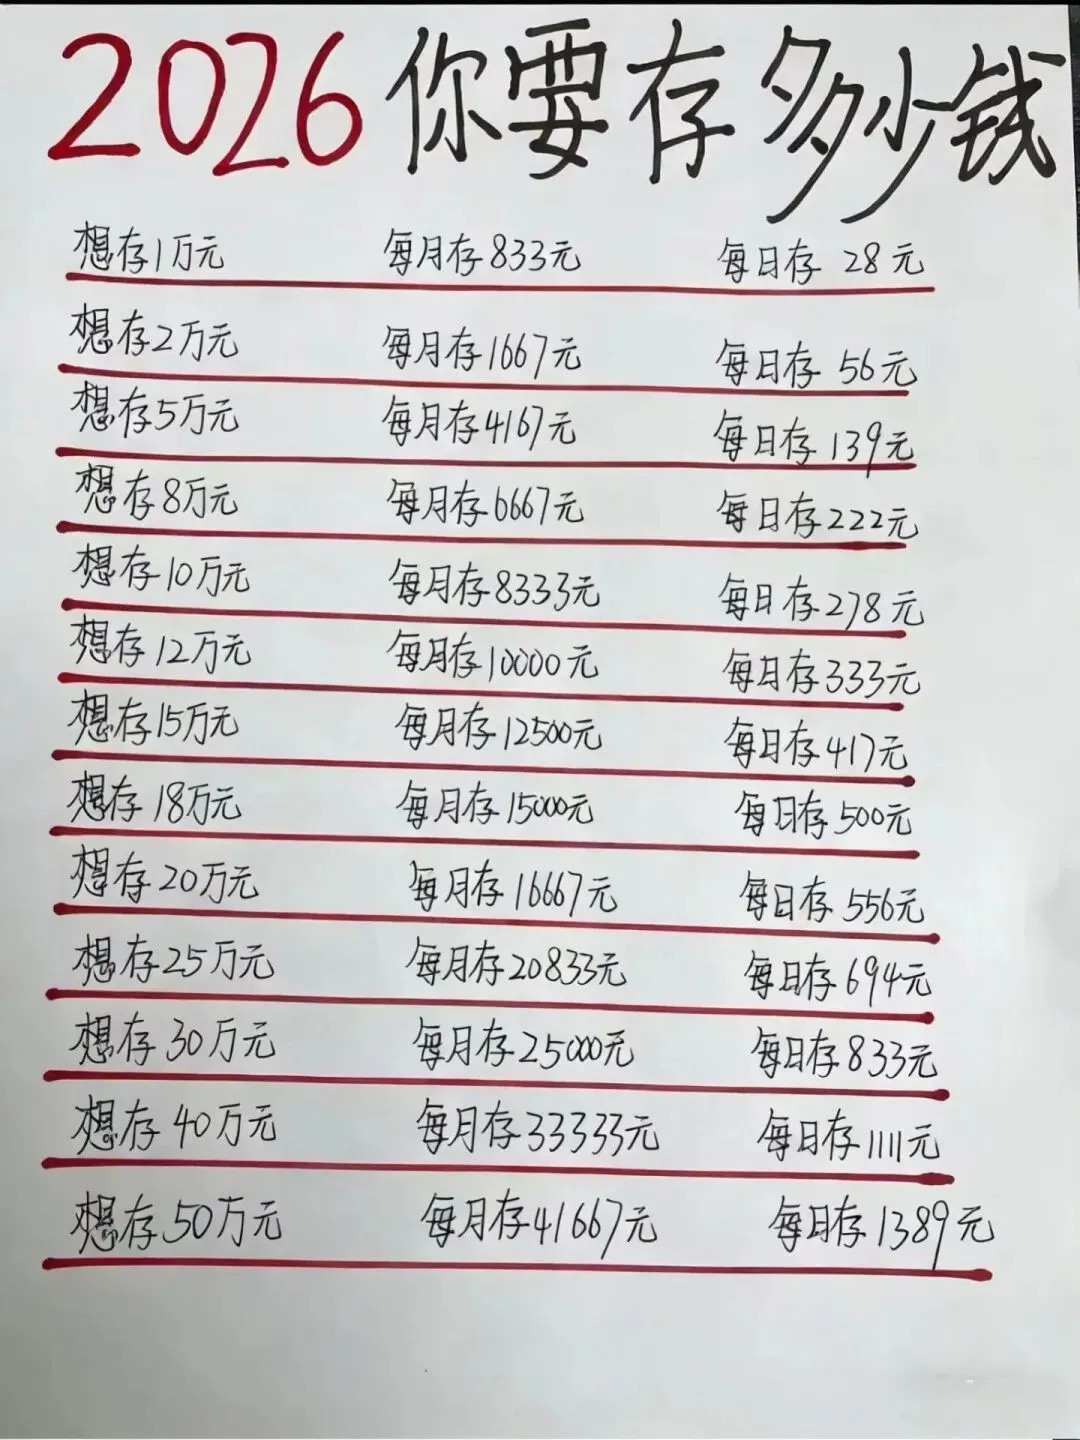 2026你要存多少钱
想存1万元 每月存833元 每日存28元
想存2万元 每月存1667元 每日存56元
想存5万元 每月存4167元 每日存139元
想存8万元 每月存6667元 每日存222元
想存10万元 每月存8333元 每日存278元
想存12万元 每月存10000元 每日存333元
想存15万元 每月存12500元 每日存417元
想存18万元 每月存15000元 每日存500元
想存20万元 每月存16667元 每日存556元
想存25万元 每月存20833元 每日存694元
想存30万元 每月存25000元 每日存833元
想存40万元 每月存33333元 每日存1111元
想存50万元 每月存41667元 每日存1389元